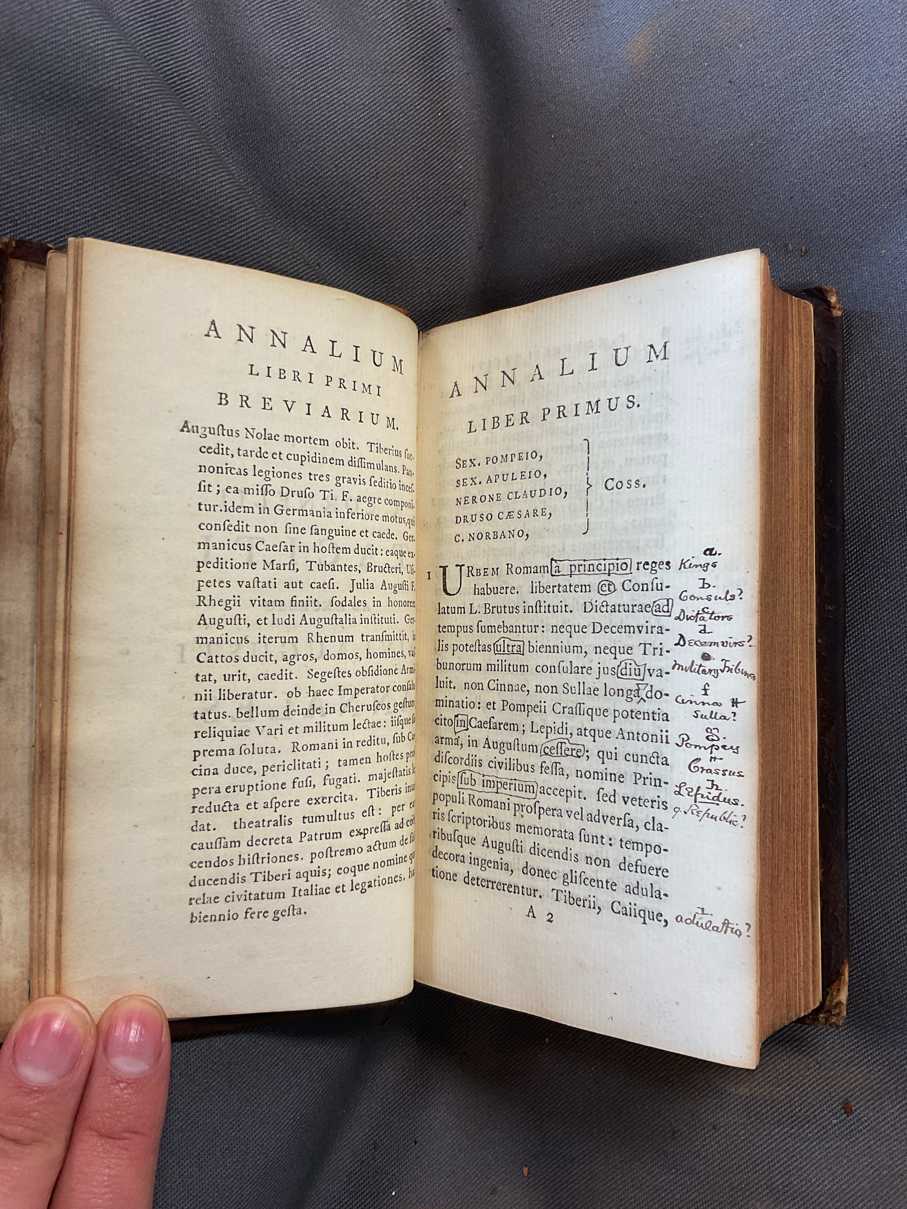 ANNALIUM
LIBRI PRIMI
BREVIARIUM.
Auguſtus Nolae mortem obit. Tiberius ſuc-
cedit, tarde et cupidinem diſſimulans. Pan-
nonicas legiones tres gravis ſeditio inceſ-
ſit; ea miſſo Druſo Ti. F. aegre componi-
tur. idem in Germania inferiore motus, qui
conſedit non ſine ſanguine et caede. Ger-
manicus Caeſar in hoſtem ducit: eaque ex-
peditione Marſi, Tubantes, Bructeri, Uſ-
petes vaſtati aut caeſi. Julia Auguſti F.
Rhegii vitam finiit. ſodales in honorem
Auguſti, et ludi Auguſtalia inſtituti. Ger-
manicus iterum Rhenum tranſmittit, in
Cattos ducit, agros, domos, homines, vaſ-
tat, urit, caedit. Segeſtes obſidione Armi-
nii liberatur. ob haec Imperator conſalu-
tatus. bellum deinde in Cheruſcos geſtum
reliquiae Vari et militum lectae: iiſque ſu-
prema ſoluta. Romani in reditu, ſub Cae-
cina duce, periclitati; tamen hoſtes pro-
pera eruptione fuſi, fugati. majeſtatis lex
reducta et aſpere exercita. Tiberis inun-
dat. theatralis tumultus eſt: per eam
cauſſam decreta Patrum expreſſa ad coër-
cendos hiſtriones. poſtremo actum de
ducendis Tiberi aquis; eoque nomine
relae civitatum Italiae et legationes. haec
biennio fere geſta.
ANNALIUM
LIBER PRIMUS.
SEX. POMPEIO,
SEX. APULEIO,
NERONE CLAUDIO, Coss.
DRUSO CÆSARE,
C. NORBANO,
1 URBEM Romam à principio reges
habuere. libertatem et Conſu-
latum L. Brutus inſtituit. Dictaturae ad
tempus ſumebantur: neque Decemvira-
lis poteſtas ultra biennium, neque Tri-
bunorum militum conſulare jus diù va-
luit. non Cinnae, non Sullae longa do-
minatio: et Pompeii Craſſique potentia
cito in Caeſarem; Lepidi, atque Antonii
arma, in Auguſtum ceſſere; qui cuncta
diſcordiis civilibus feſſa, nomine Prin-
cipis ſub imperium accepit. ſed veteris
populi Romani proſpera vel adverſa, cla-
ris ſcriptoribus memorata ſunt: tempo-
ribuſque Auguſti dicendis non defuere
decora ingenia, donec gliſcente adula-
tione deterrerentur. Tiberii, Caiique,
A 2
a.
Kings
b.
Consuls?
c
Dictators
d
Decemvirs?
e
Military Tribuns
f
Cinna #
Sulla?
g.
Pompeys
#
Crassus
h
Lepidus.
9 Republic?
1
adulattio?